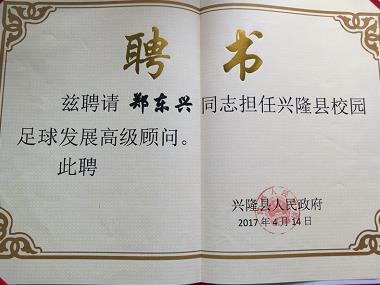 聘书
兹聘请 郑东兴 同志担任兴隆县校园
足球发展高级顾问。
此聘
兴隆县人民政府
2017年4月14日